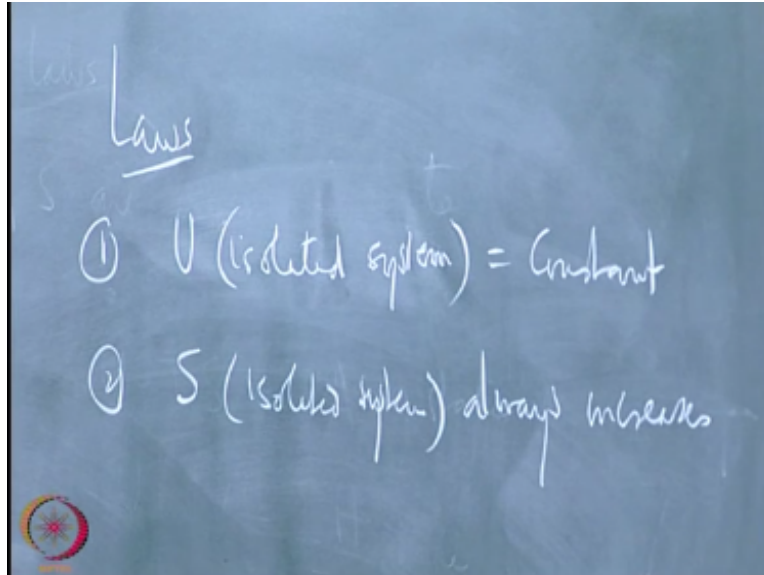 Laws
① U (isolated system) = Constant
② S (isolated system) always increases